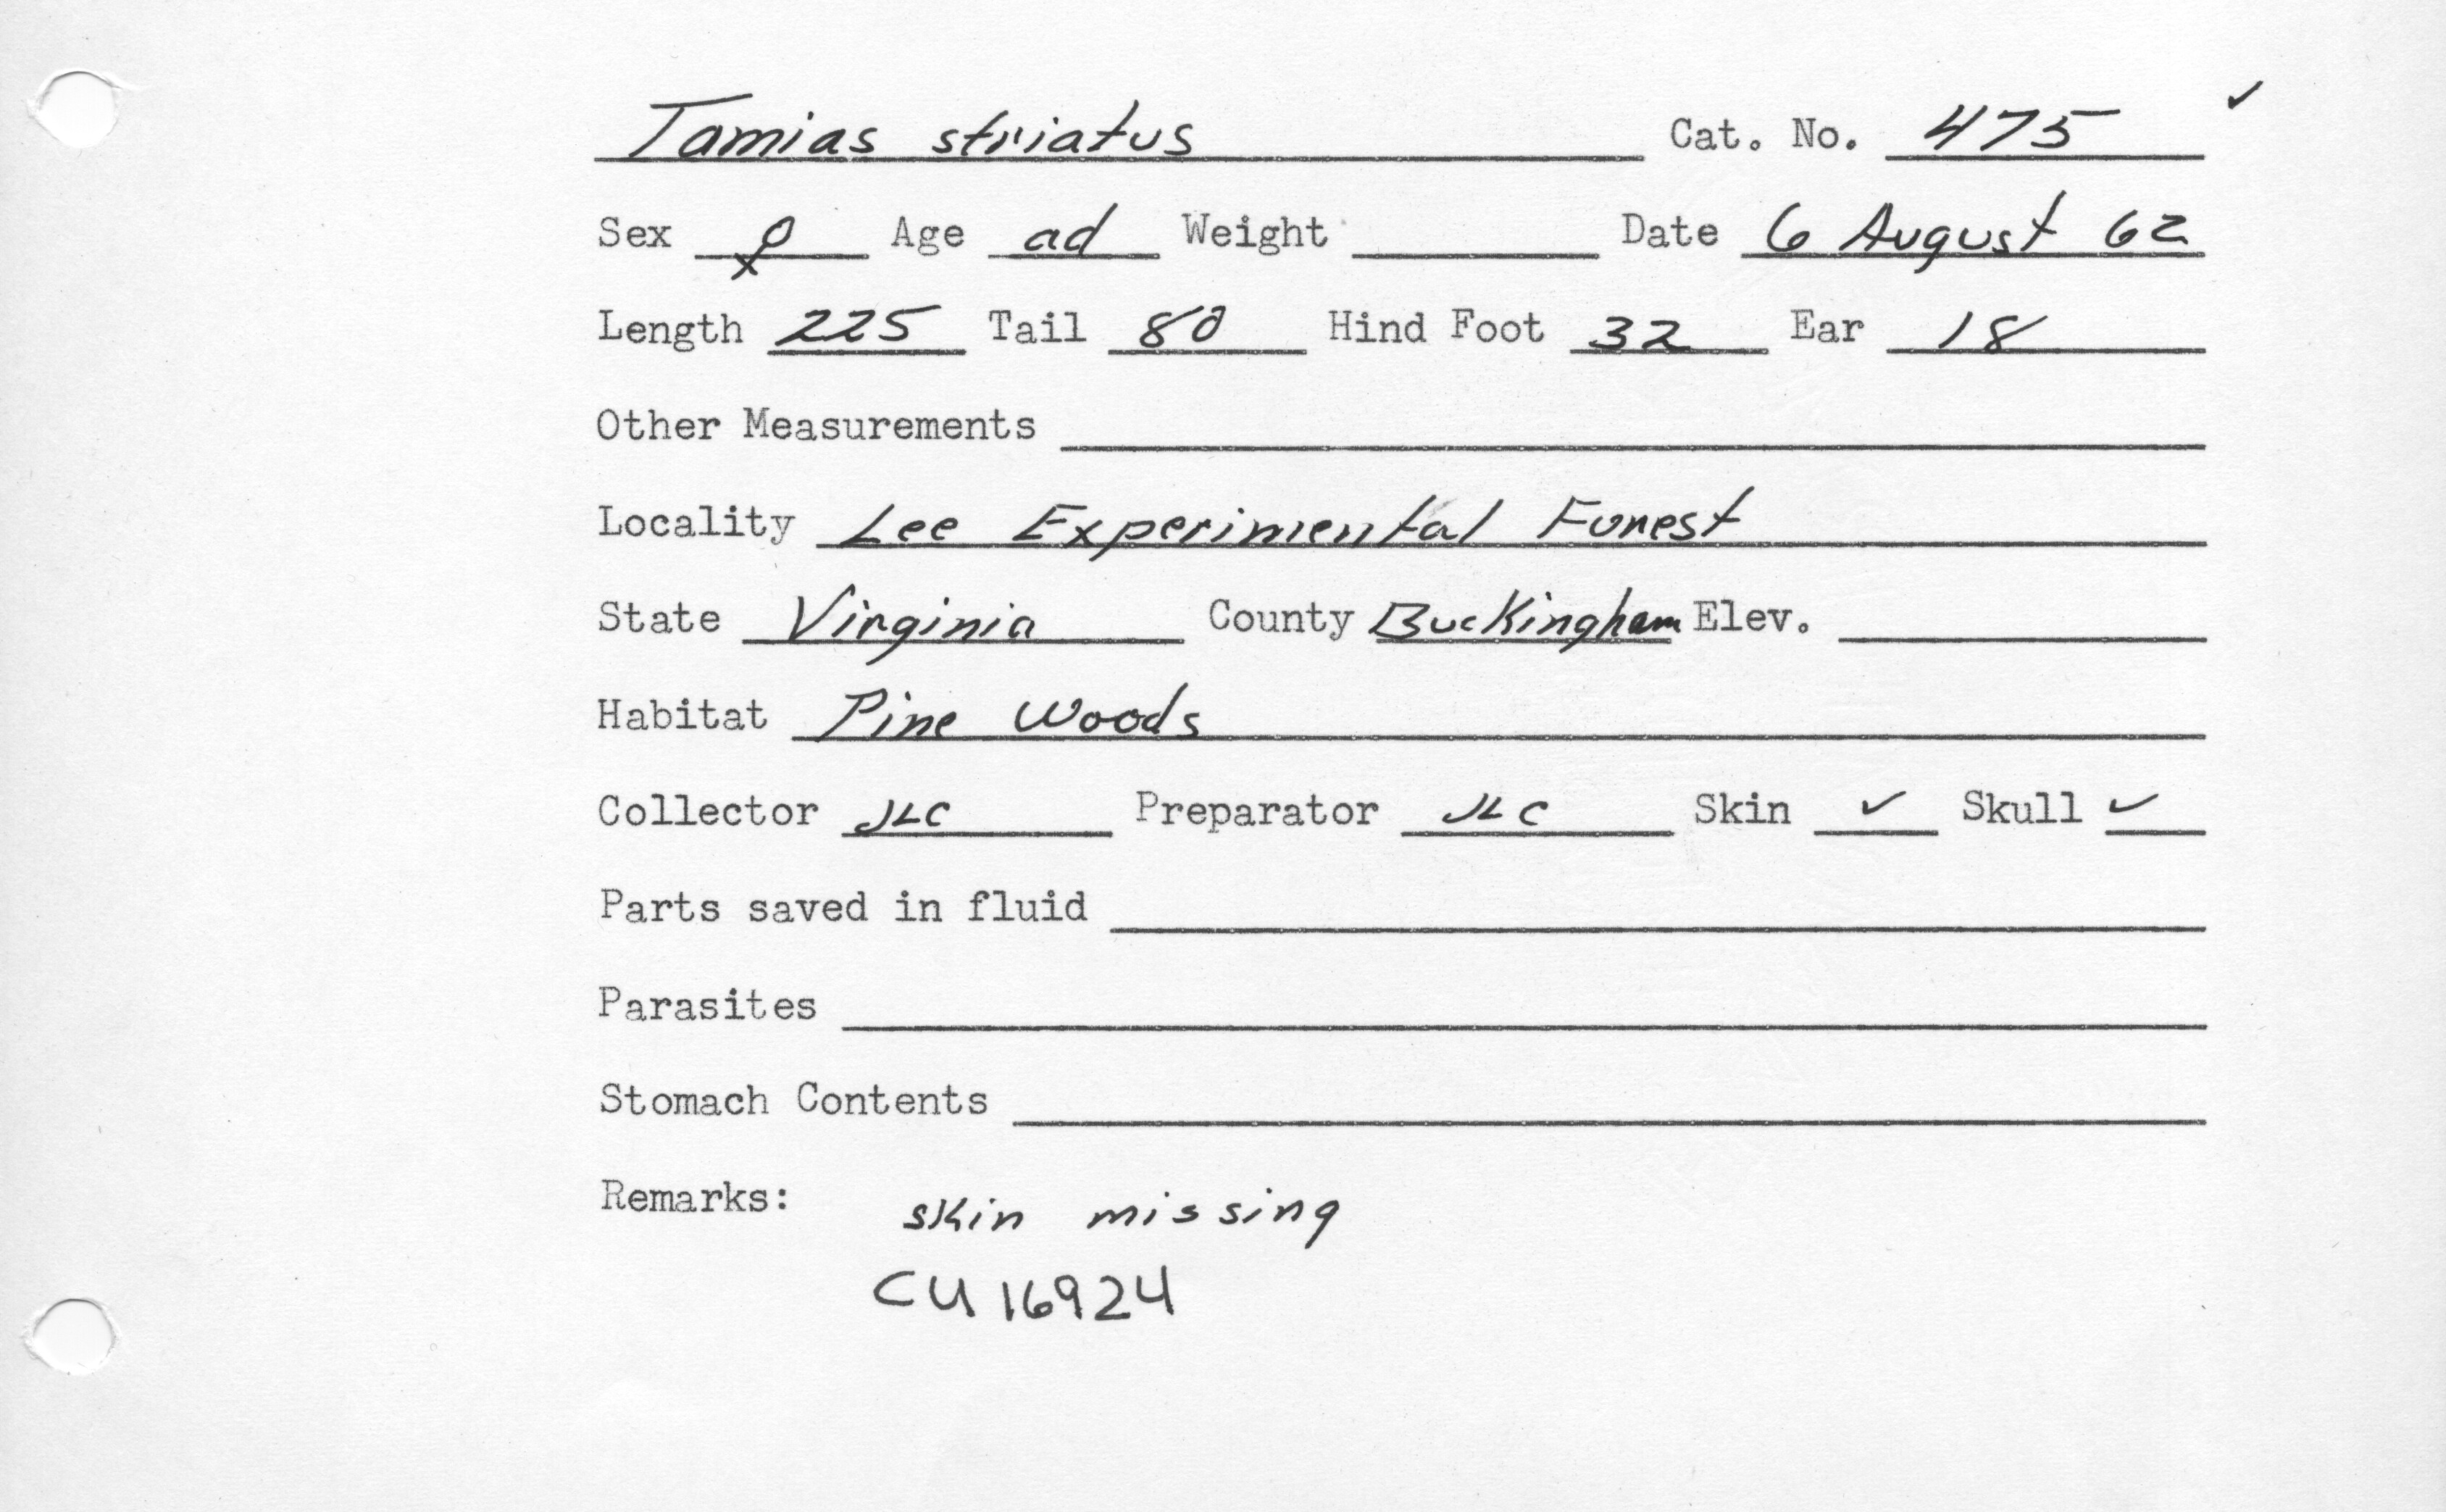 Tamias striatus Cat. No. 475 ✓
Sex ♀ Age ad Weight Date 6 August 62
Length 225 Tail 80 Hind Foot 32 Ear 18
Other Measurements
Locality Lee Experimental Forest
State Virginia County Buckingham Elev.
Habitat Pine Woods
Collector JLC Preparator JLC Skin ✓ Skull ✓
Parts saved in fluid
Parasites
Stomach Contents
Remarks: skin missing
CU 16924